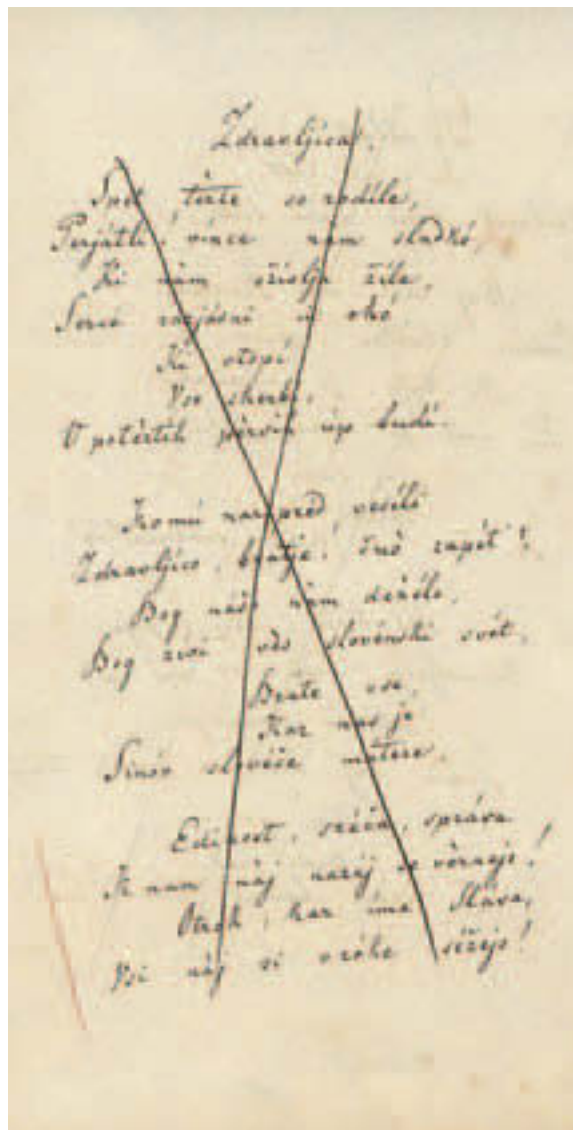 Zdravljica.
Spet térte so rodíle,
Perjátli, vínce nam sladkó,
Ki nam ožívlja žíle,
Sercé razjásni in okó
Ki otopí
Vse skerbí,
V potértih pérsih úp budí.
Komú narpred veséló
Zdravljíco, bratje, čmò zapét'!
Bog našo nam dežélo,
Bog živí ves slovénski svét,
Brate vse,
Kar nas je
Sinóv slovéče mátere.
Edínost, sréča, správa
K nam náj nazáj se vérnejo!
Otrók, kar íma Sláva,
Vsi náj si v róke séžejo!